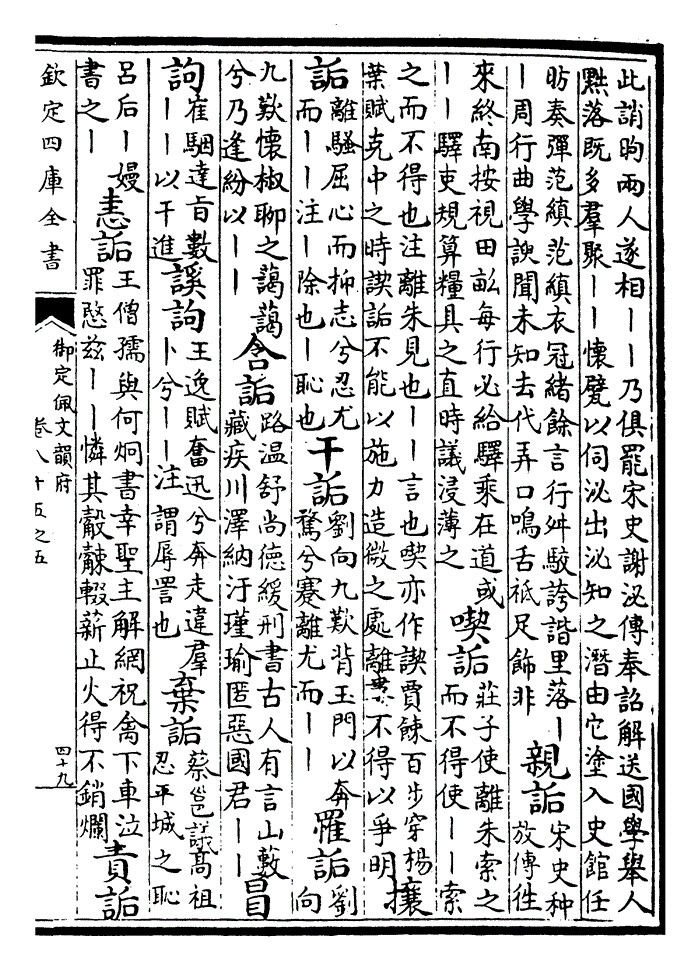 此誚昫兩人遂相丨丨乃俱罷宋史謝泌傳奉詔解送國學舉人
黜落既多羣聚丨丨懷甓以伺泌出泌知之潛由它塗入史館任
昉奏彈范縝范縝衣冠緒餘言行舛駮誇諧里落丨
丨周行曲學諛聞未知去代弄口鳴舌祗足飾非
親詬
宋史种
放傳徃
來終南按視田畝每行必給驛乘在道或
丨丨驛吏規算糧具之直時議浸薄之
喫詬
莊子使離朱索之
而不得使丨丨索
之而不得也注離朱見也丨丨言也喫亦作謑賈餗百步穿楊
葉賦克中之時謑詬不能以施力造微之處離婁不得以爭明
攘
詬
離騷屈心而抑志兮忍尤
而丨丨注丨除也丨恥也
干詬
劉向九歎背玉門以奔
騖兮蹇離尤而丨丨
罹詬
劉
向
九歎懷椒聊之藹藹
兮乃逢紛以丨丨
含詬
路温舒尚德緩刑書古人有言山藪
藏疾川澤納汙瑾瑜匿惡國君丨丨
詈
訽
崔駰達旨數
丨丨以干進
謑訽
王逸賦奮迅兮奔走違羣
卜兮丨丨注謂辱詈也
棄詬
蔡邕議髙祖
忍平城之恥
呂后丨嫚
書之丨
恚詬
王僧孺與何炯書幸聖主解網祝禽下車泣
罪愍兹丨丨憐其觳觫輟薪止火得不銷爛
責詬
欽定四庫全書
御定佩文韻府
卷八十五之五
四十九